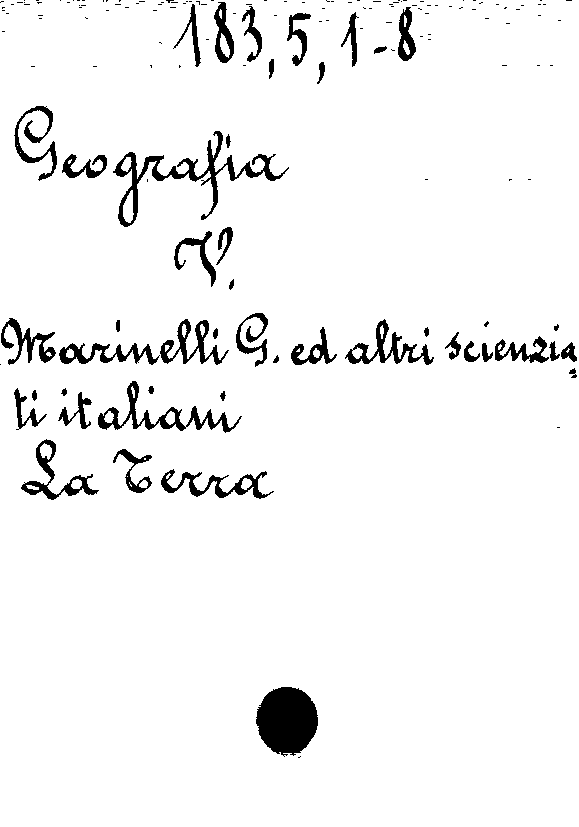 183,5,1-8
Geografia
V.
Marinelli G. ed altri scienzia=
ti italiani
La Terra